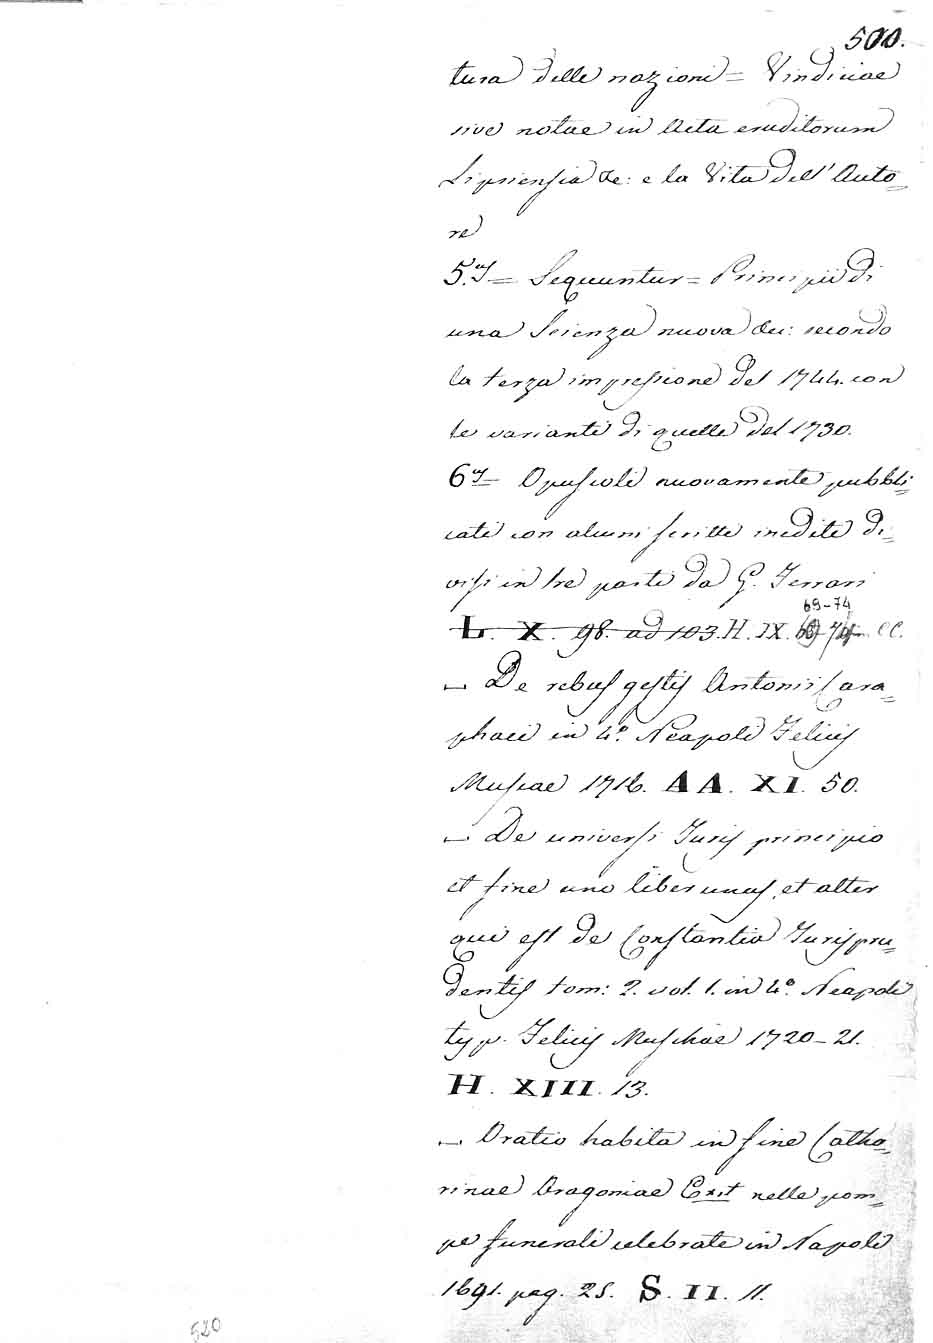 500.
tura delle nazioni = Vindiciae
sive notae in Acta eruditorum
Lipsiensia &c: e la Vita dell' Auto=
re
5.us = Sequuntur = Principii di
una Scienza nuova &c: secondo
la terza impressione del 1744. con
le varianti di quelle del 1730.
6us = Opuscoli nuovamente pubbli=
cati con alcuni scritti inediti di=
visi in tre parti da G. Ferrari
69-74
L. X. 98. ad 103. H. IX. CC.
– De rebus gestis Antonii Cara=
phaei in 4.o Neapoli Felicis
Muscae 1716. AA. XI. 50.
– De universi Juris principio
et fine uno liber unus, et alter
qui est de Constantia Jurispru=
dentis tom: 2. vol. 1. in 4.o Neapoli
typ. Felicis Muschae 1720-21.
H. XIII. 13.
– Oratio habita in fine Catha=
rinae Aragoniae Exit nelle pom=
pe funerali celebrate in Napoli
1691. pag. 25. S. II. 11.
520